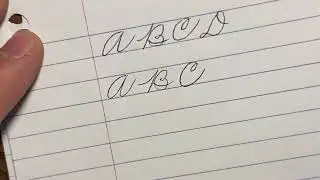 A B C D
A B C